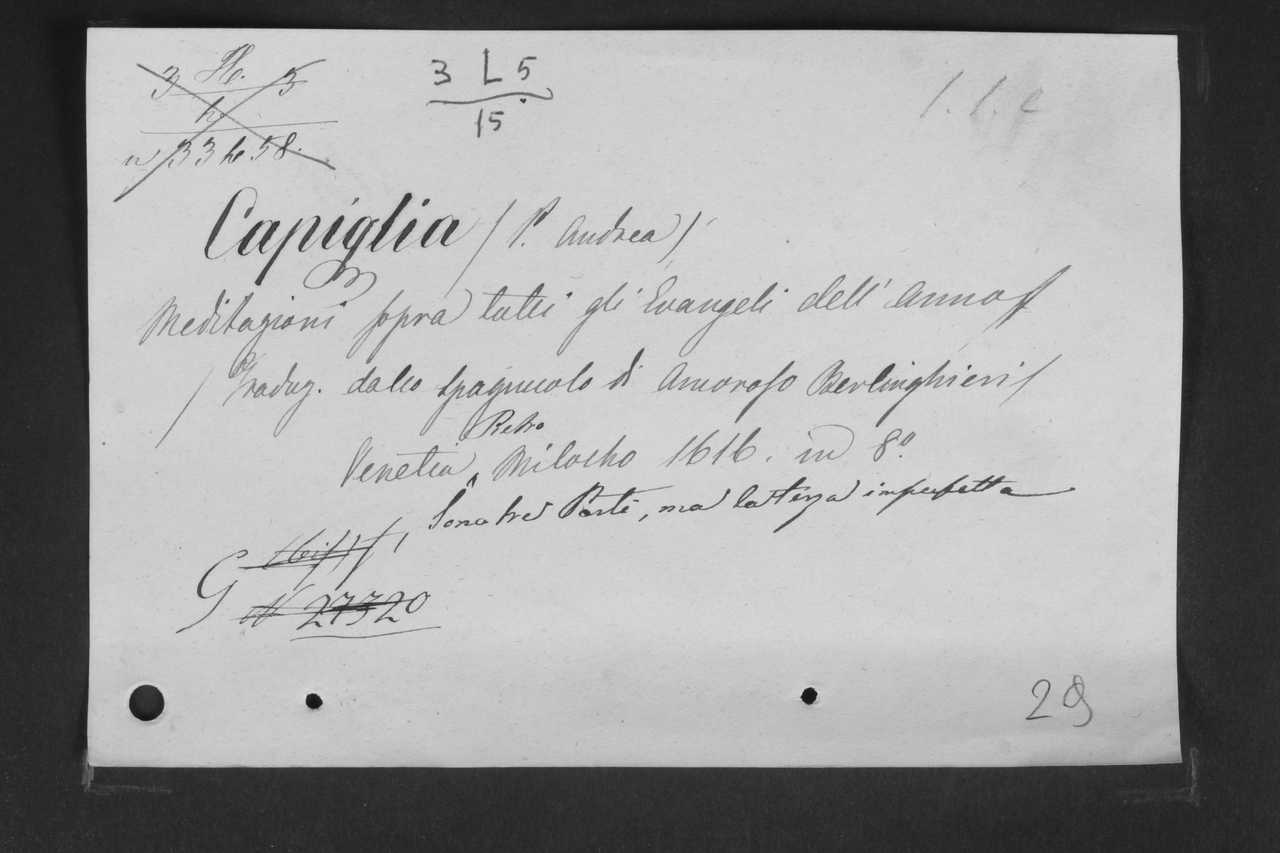 3 H. 5
h
n 33 h 58.
3 L 5
15.
Capiglia / P. Andrea /
Meditazioni sopra tutti gli Evangeli dell' Anno
/ Traduz. dallo Spagnuolo di Amoroso Berlinghieri /
Venetia Pietro Milocho 1616. in 8.º
Sono tre Parti, ma la terza imperfetta
G
N 27320
29